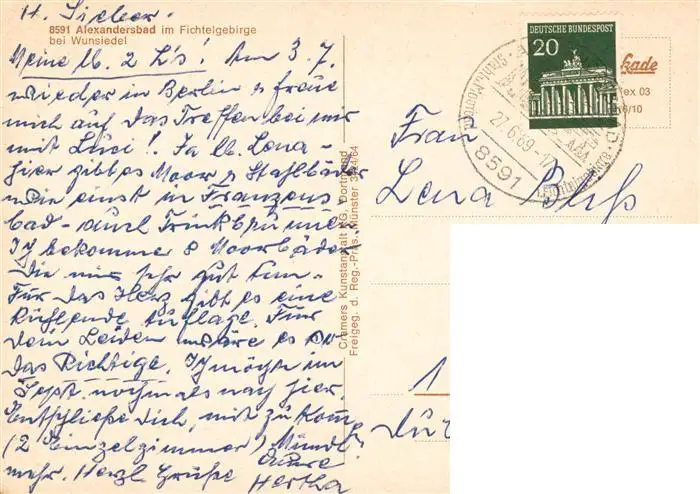 H. Sieber.
8591 Alexandersbad im Fichtelgebirge
bei Wunsiedel
Meine lb. 2 L's! Am 3.7.
wieder in Berlin u freue
mich auf das Treffen bei mir
mit Luci! Ja lb. Lena-
hier gibt es Moor u Stahlbäder
wie einst in Franzens-
bad - auch Trinkbrunnen
Ich bekomme 8 Moorbäder
die mir sehr gut tun -
Für das Herz gibt es eine
kühlende Auflage. Für
dein Leiden wäre es so
das Richtige. Ich möcht im
Sept. nochmals nach hier.
Entschließe Dich, mit zu kom.
(2 Einzelzimmer) Mündl.
mehr. Herzl. Grüße Eure
Hertha
Cramers Kunstanstalt KG, Dortmund
Freigeg. d. Reg.-Präs. Münster
DEUTSCHE BUNDESPOST
20
27.6.69-17
8591
Fichtelgebirge
kade
ex 03
6/10
Frau
Lena
1